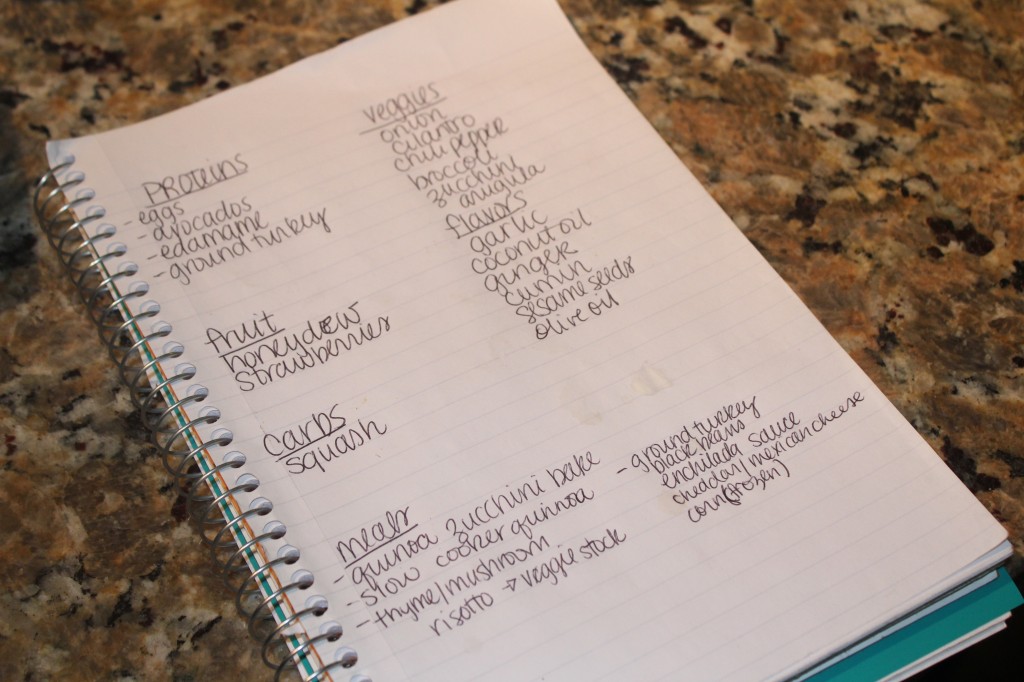 Proteins
- eggs
- avocados
- edamame
- ground turkey
fruit
honeydew
strawberries
carbs
squash
veggies
onion
cilantro
chili pepper
broccoli
zucchini
arugula
flavors
garlic
coconut oil
ginger
cumin
sesame seeds
olive oil
meals
- quinoa zucchini bake
- slow cooker quinnoa
- thyme/mushroom
risotto → veggie stock
- ground turkey
black beans
enchilada sauce
cheddar/mexican cheese
corn (frozen)